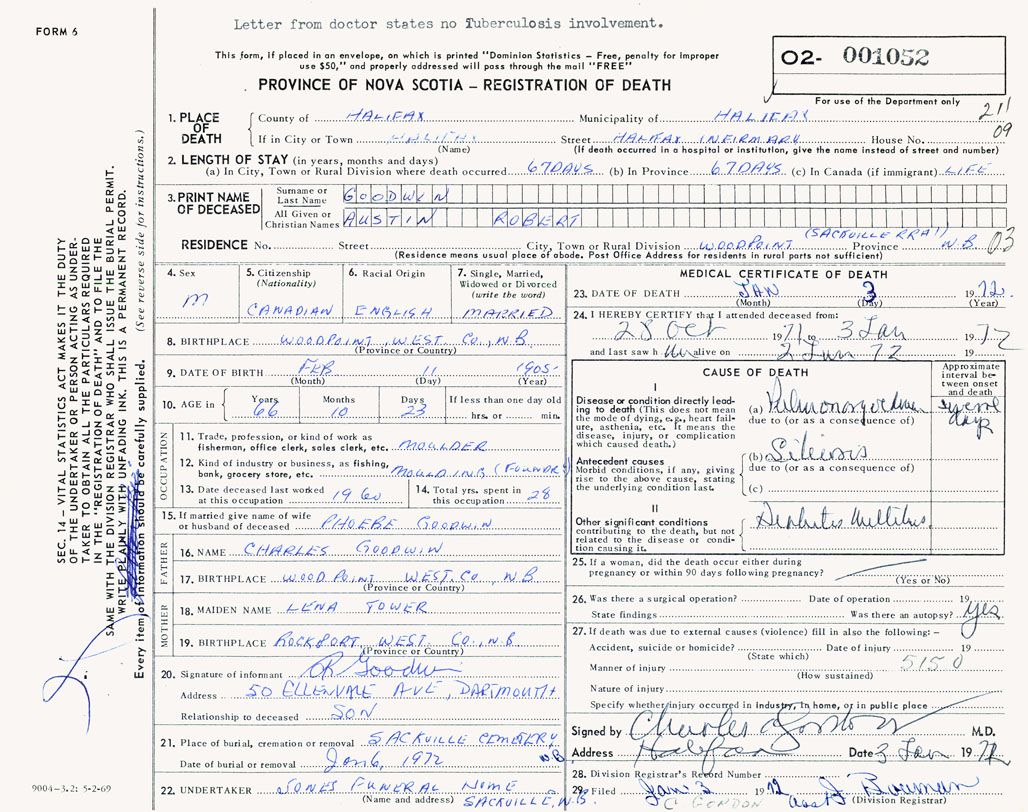 Letter from doctor states no Tuberculosis involvement.
FORM 6
This form, if placed in an envelope, on which is printed "Dominion Statistics – Free, penalty for improper
use $50," and properly addressed will pass through the mail "FREE"
O2- 001052
PROVINCE OF NOVA SCOTIA – REGISTRATION OF DEATH
For use of the Department only
211
09
1. PLACE OF DEATH
County of HALIFAX Municipality of HALIFAX
If in City or Town HALIFAX Street HALIFAX INFIRMARY House No.
(Name) (If death occurred in a hospital or institution, give the name instead of street and number)
2. LENGTH OF STAY (in years, months and days)
(a) In City, Town or Rural Division where death occurred 67 DAYS (b) In Province 67 DAYS (c) In Canada (if immigrant) LIFE
3. PRINT NAME OF DECEASED
Surname or Last Name GOODWIN
All Given or Christian Names AUSTIN ROBERT
(SACKVILLE RR#1)
RESIDENCE No. Street City, Town or Rural Division WOODPOINT Province N.B. 03
(Residence means usual place of abode. Post Office Address for residents in rural parts not sufficient)
SEC. 14 – VITAL STATISTICS ACT MAKES IT THE DUTY
OF THE UNDERTAKER OR PERSON ACTING AS UNDER-
TAKER TO OBTAIN ALL THE PARTICULARS REQUIRED
IN THE "REGISTRATION OF DEATH" AND TO FILE THE
SAME WITH THE DIVISION REGISTRAR WHO SHALL ISSUE THE BURIAL PERMIT.
WRITE PLAINLY WITH UNFADING INK. THIS IS A PERMANENT RECORD.
Every item of information should be carefully supplied. (See reverse side for instructions.)
4. Sex M
5. Citizenship (Nationality) CANADIAN
6. Racial Origin ENGLISH
7. Single, Married, Widowed or Divorced (write the word) MARRIED
8. BIRTHPLACE WOODPOINT, WEST. CO., N.B.
(Province or Country)
9. DATE OF BIRTH FEB 11 1905
(Month) (Day) (Year)
10. AGE in Years 66 Months 10 Days 23 If less than one day old
hrs. or min.
OCCUPATION
11. Trade, profession, or kind of work as
fisherman, office clerk, sales clerk, etc. MOULDER
12. Kind of industry or business, as fishing,
bank, grocery store, etc. MOULDING (FOUNDRY)
13. Date deceased last worked
at this occupation 1960
14. Total yrs. spent in
this occupation 28
15. If married give name of wife
or husband of deceased PHOEBE GOODWIN
FATHER
16. NAME CHARLES GOODWIN
17. BIRTHPLACE WOOD POINT WEST. CO, N.B.
(Province or Country)
MOTHER
18. MAIDEN NAME LENA TOWER
19. BIRTHPLACE ROCKPORT, WEST. CO., N.B.
(Province or Country)
20. Signature of informant Goodwin
Address 50 ELLENVALE AVE, DARTMOUTH
Relationship to deceased SON
21. Place of burial, cremation or removal SACKVILLE CEMETERY, N.B.
Date of burial or removal Jan 6, 1972
22. UNDERTAKER JONES FUNERAL HOME
(Name and address) SACKVILLE, N.B.
9004-3.2: 5-2-69
MEDICAL CERTIFICATE OF DEATH
23. DATE OF DEATH JAN 3 1972.
(Month) (Day) (Year)
24. I HEREBY CERTIFY that I attended deceased from:
28 Oct 1971 to 3 Jan 1972
and last saw him alive on 2 Jan 72 19
CAUSE OF DEATH
Approximate interval between onset and death
I
Disease or condition directly lead-
ing to death (This does not mean
the mode of dying, e.g., heart fail-
ure, asthenia, etc. It means the
disease, injury, or complication
which caused death.)
(a) Pulmonary edema several days
due to (or as a consequence of)
Antecedent causes
Morbid conditions, if any, giving
rise to the above cause, stating
the underlying condition last.
(b) Silicosis
due to (or as a consequence of)
(c)
II
Other significant conditions
contributing to the death, but not
related to the disease or condi-
tion causing it.
Diabetes Mellitus
25. If a woman, did the death occur either during
pregnancy or within 90 days following pregnancy?
(Yes or No)
26. Was there a surgical operation? Date of operation 19
State findings Was there an autopsy? Yes
27. If death was due to external causes (violence) fill in also the following: –
Accident, suicide or homicide? Date of injury 19
(State which) 5150
Manner of injury
(How sustained)
Nature of injury
Specify whether injury occurred in industry, in home, or in public place
Signed by Charles Gordon M.D.
Address Halifax Date 3 Jan 1972
28. Division Registrar's Record Number
29. Filed Jan. 3 1972 J. Bowman
C GORDON (Division Registrar)